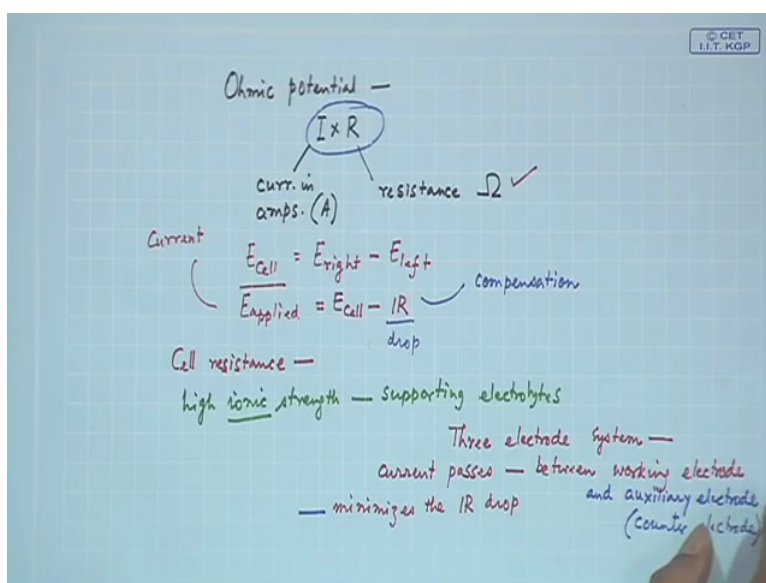 © CET
I.I.T. KGP
Ohmic potential —
I × R
curr. in
amps. (A)
resistance Ω ✓
Current
E cell = E right - E left
E applied = E cell - IR
compensation
drop
Cell resistance —
high ionic strength — supporting electrolytes
Three electrode system —
current passes — between working electrode
and auxiliary electrode
— minimizes the IR drop
(counter electrode)